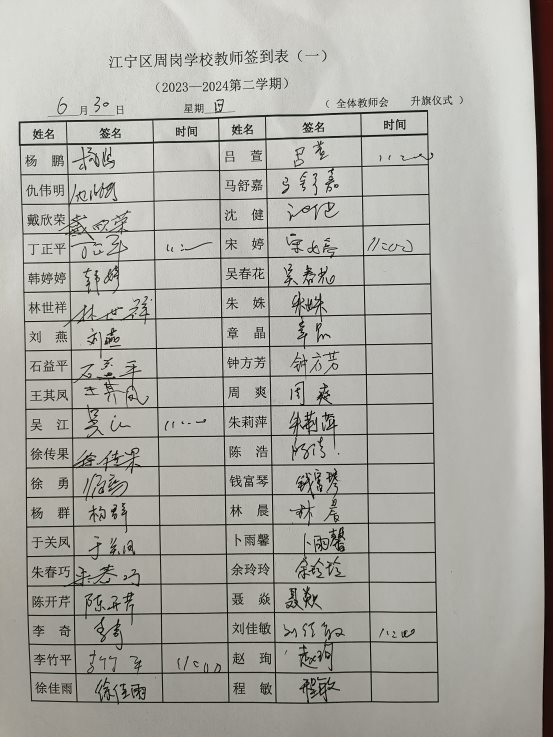 江宁区周岗学校教师签到表（一）
（2023—2024第二学期）
6 月 30 日 星期 日 （ 全体教师会 升旗仪式 ）
姓名 签名 时间 姓名 签名 时间
杨 鹏 杨鹏 吕 萱 吕萱 11:00
仇伟明 仇伟明 马舒嘉 马舒嘉
戴欣荣 戴欣荣 沈 健 沈健
丁正平 丁正平 11:00 宋 婷 宋婷 11:00
韩婷婷 韩婷 吴春花 吴春花
林世祥 林世祥 朱 姝 朱姝
刘 燕 刘燕 章 晶 章晶
石益平 石益平 钟方芳 钟方芳
王其凤 王其凤 周 爽 周爽
吴 江 吴江 11:00 朱莉萍 朱莉萍
徐传果 徐传果 陈 浩 陈浩
徐 勇 徐勇 钱富琴 钱富琴
杨 群 杨群 林 晨 林晨
于关凤 于关凤 卜雨馨 卜雨馨
朱春巧 朱春巧 余玲玲 余玲玲
陈开芹 陈开芹 聂 焱 聂焱
李 奇 李奇 刘佳敏 刘佳敏 11:00
李竹平 李竹平 11:00 赵 珣 赵珣
徐佳雨 徐佳雨 程 敏 程敏